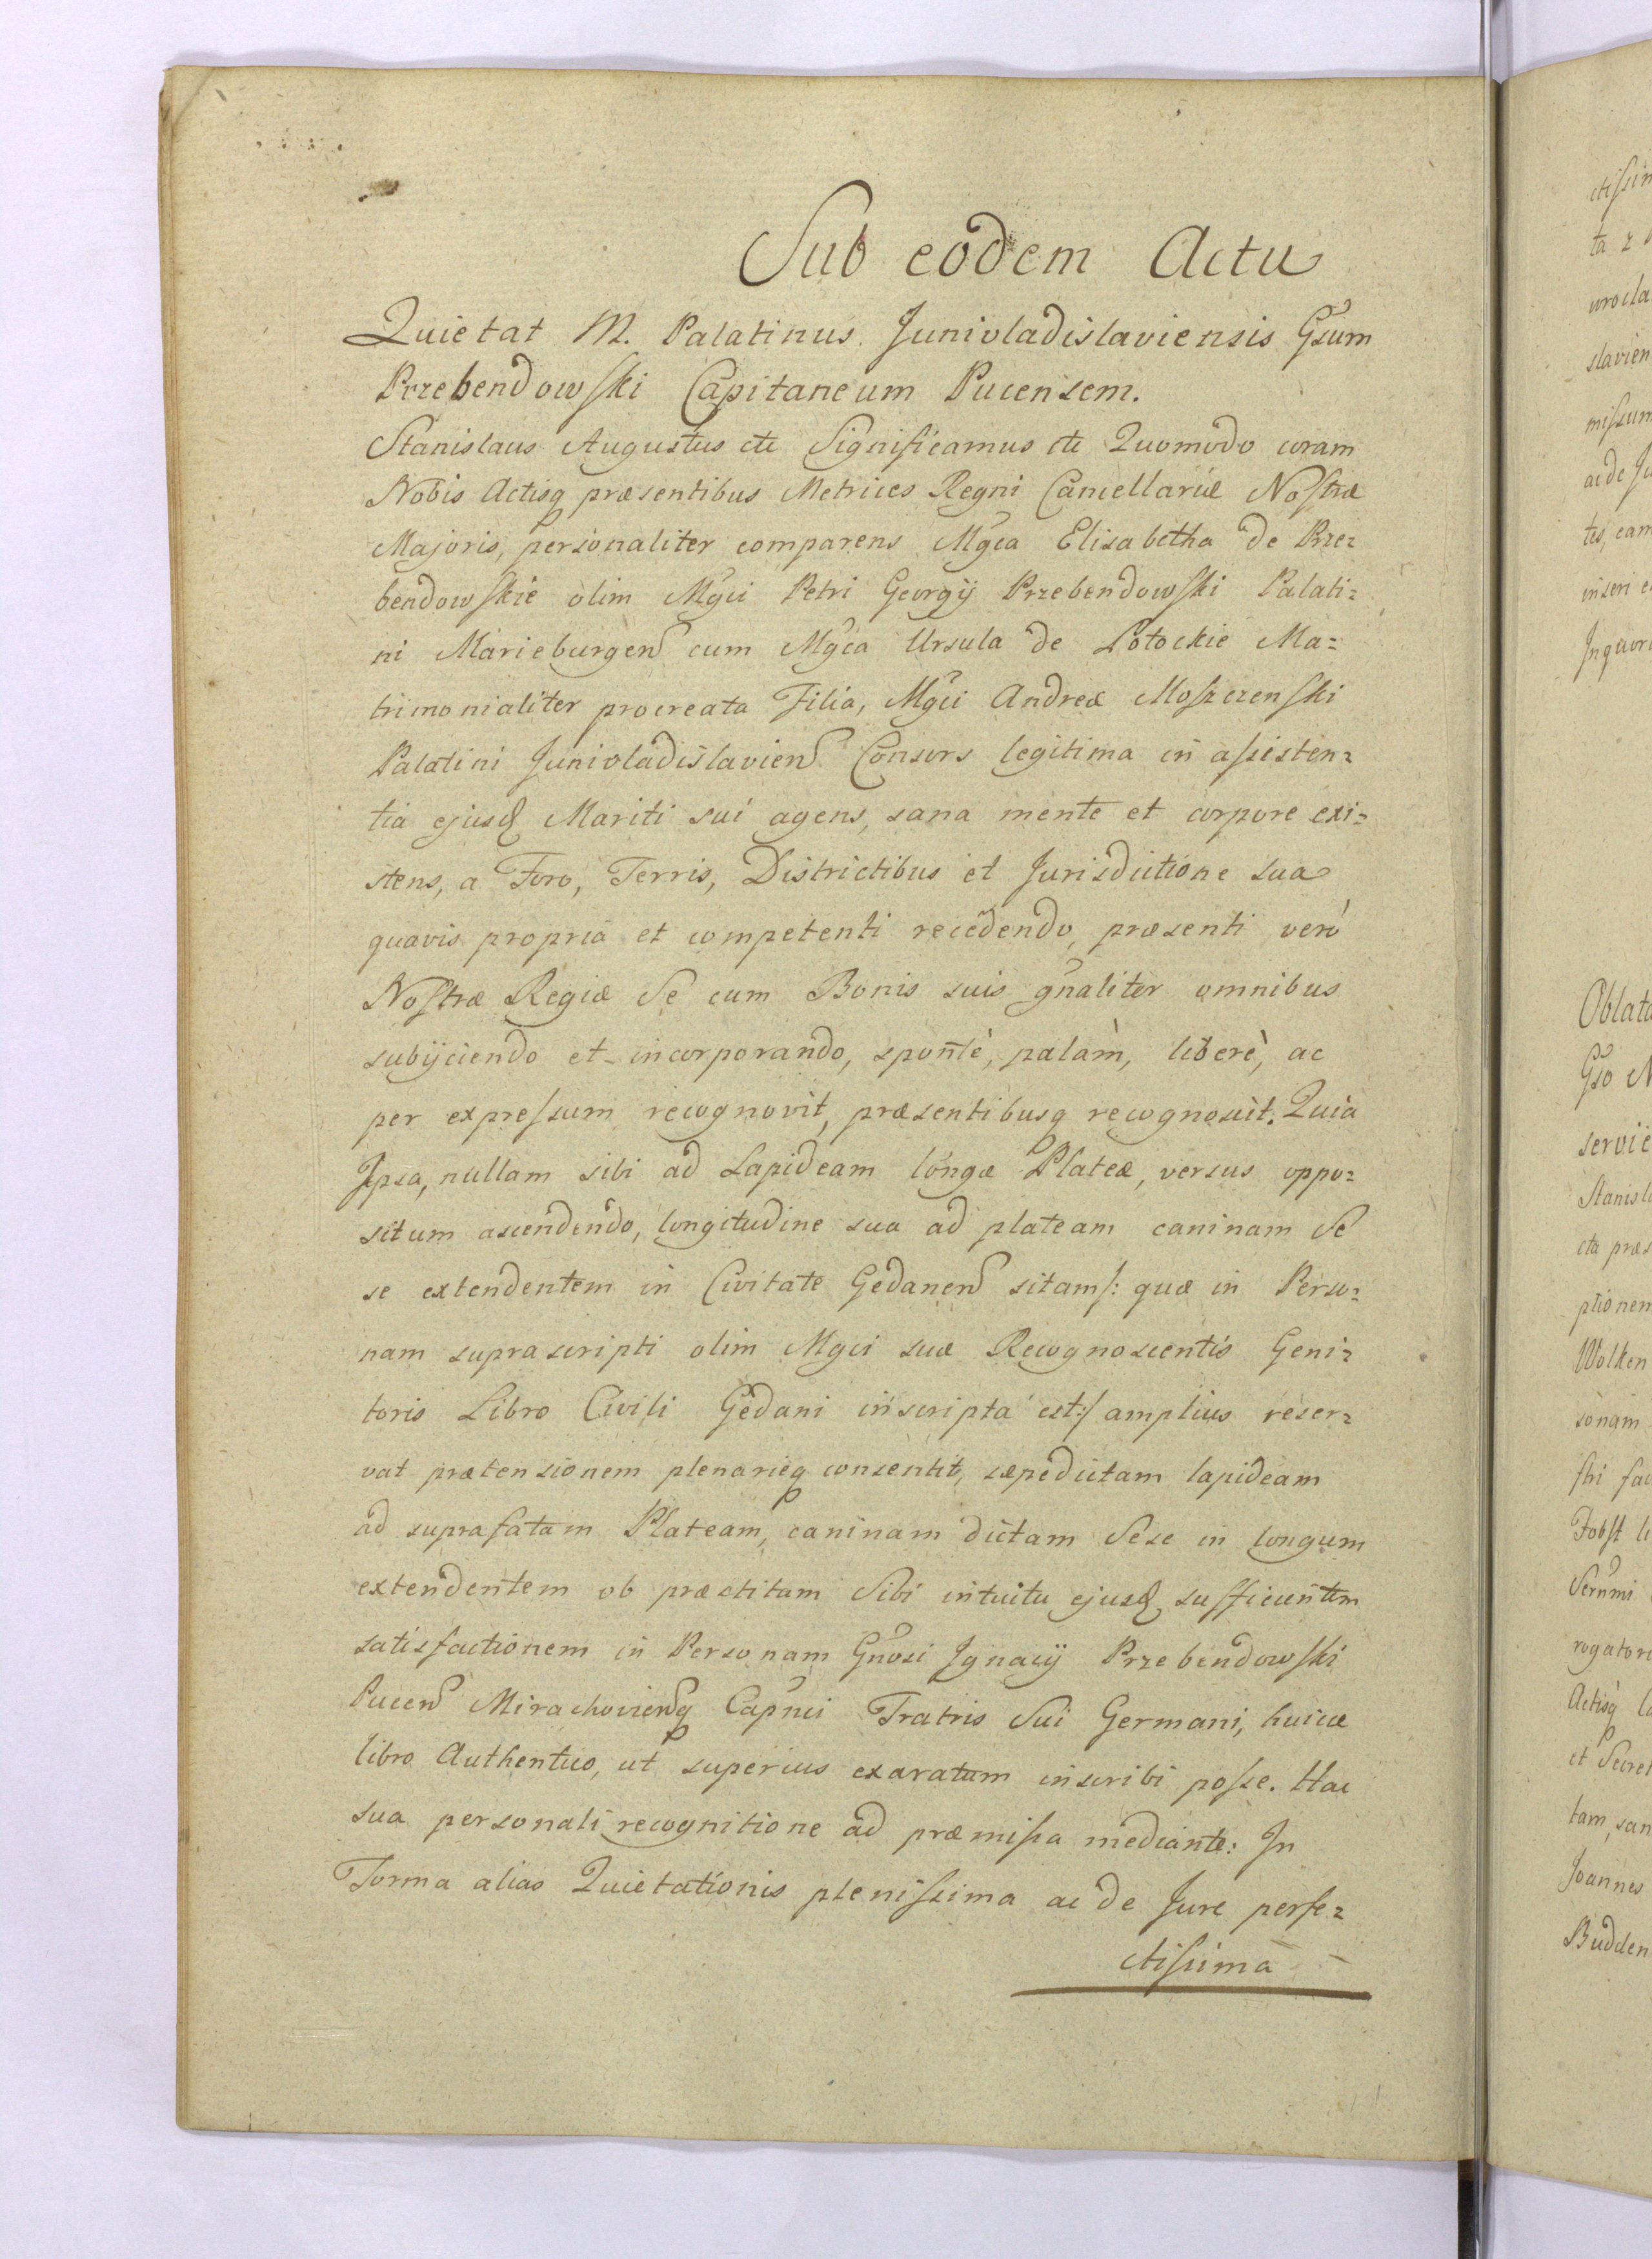 Sub eodem Actu
Quietat M. Palatinus Junivladislaviensis Gsum
Przebendowski Capitaneum Pucensem.
Stanislaus Augustus etc Significamus etc Quomodo coram
Nobis Actisq præsentibus Metrices Regni Cancellariæ Nostræ
Majoris, personaliter comparens Mgca Elisabetha de Prze=
bendowskie olim Mgci Petri Georgÿ Przebendowski Palati=
ni Marieburgen cum Mgca Ursula de Potockie Ma=
trimonialiter procreata Filia, Mgci Andreæ Moszczenski
Palatini Junivladislavien Consors legitima in assisten=
tia ejusd Mariti sui agens, sana mente et corpore exi=
stens, a Foro, Terris, Districtibus et Jurisdictione sua
quavis propria et competenti recedendo, præsenti verò
Nostræ Regiæ Se cum Bonis suis gnaliter omnibus
subÿciendo et incorporando, spontè, palàm, liberè, ac
per expressum recognovit, præsentibusq recognoscit. Quia
Ipsa, nullam sibi ad Lapideam longæ Plateæ, versus oppo=
situm ascendendo, longitudine sua ad plateam caninam Se
se extendentem in Civitate Gedanen sitam/: quæ in Perso=
nam suprascripti olim Mgci suæ Recognoscentis Geni=
toris Libro Civili Gedani inscripta est:/ amplius reser=
vat prætensionem plenarieq consentit, sæpedictam lapideam
ad suprafatam Plateam, caninam dictam Sese in longum
extendentem ob præstitam Sibi intuitu ejusd sufficientem
satisfactionem in Personam Gnosi Ignacÿ Przebendowski
Pucen Mirachovienq Capnei Fratris Sui Germani, huicce
libro Authentico, ut superius exaratum inscribi posse. Hac
sua personali recognitione ad præmissa mediante: In
Forma alias Quietationis plenissima ac de Jure perfe=
ctissima